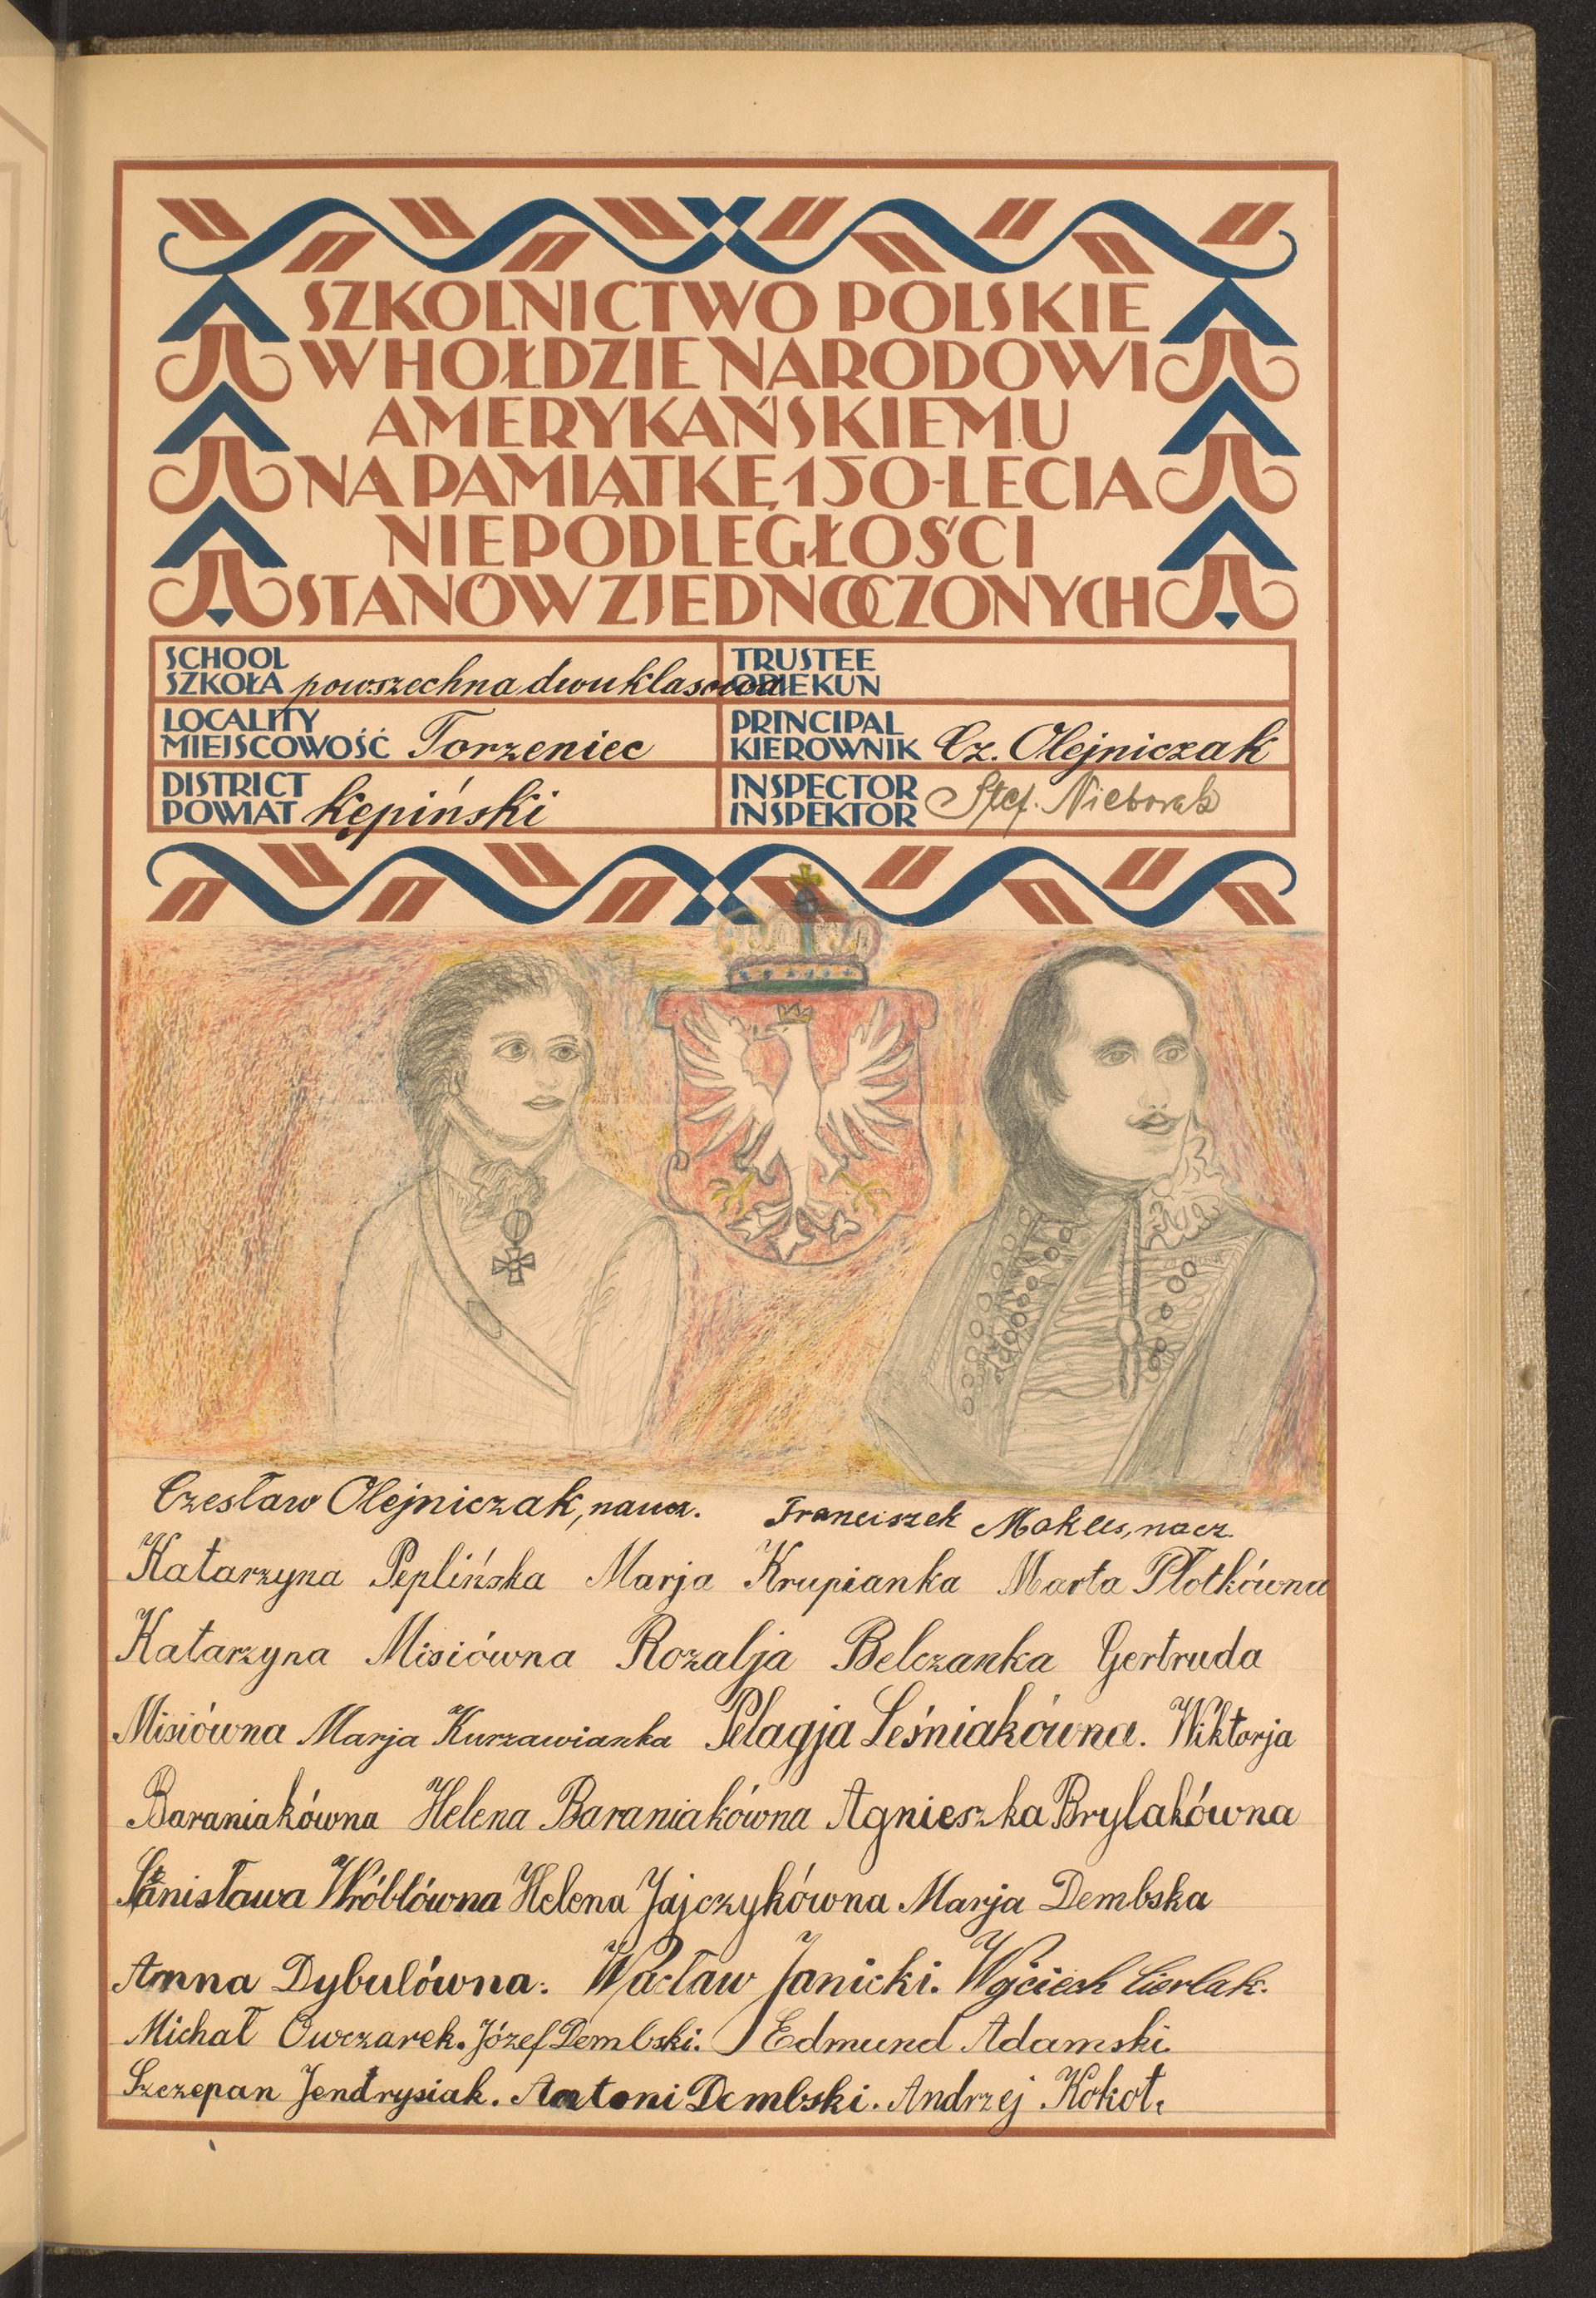 SZKOLNICTWO POLSKIE
W HOŁDZIE NARODOWI
AMERYKAŃSKIEMU
NA PAMIĄTKĘ 150-LECIA
NIEPODLEGŁOŚCI
STANÓW ZJEDNOCZONYCH
SCHOOL
SZKOŁA powszechna dwuklasowa
TRUSTEE
OPIEKUN
LOCALITY
MIEJSCOWOŚĆ Torzeniec
PRINCIPAL
KIEROWNIK Cz. Olejniczak
DISTRICT
POWIAT Kępiński
INSPECTOR
INSPEKTOR Stef. Nieborak
Czesław Olejniczak, naucz. Franciszek
Katarzyna Peplińska Marja Krupianka Marta Płotkówna
Katarzyna Misiówna Rozalja Belczanka Gertruda
Misiówna Marja Kurzawianka Pelagja Leśniakówna. Wiktorja
Baraniakówna Helena Baraniakówna Agnieszka Brylakówna
Stanisława Wróblówna Helena Jajczykówna Marja Dembska
Anna Dybulówna. Wacław Janicki. Wojciech Cierlak.
Michał Owczarek. Józef Dembski. Edmund Adamski.
Szczepan Jendrysiak. Antoni Dembski. Andrzej Kokot.